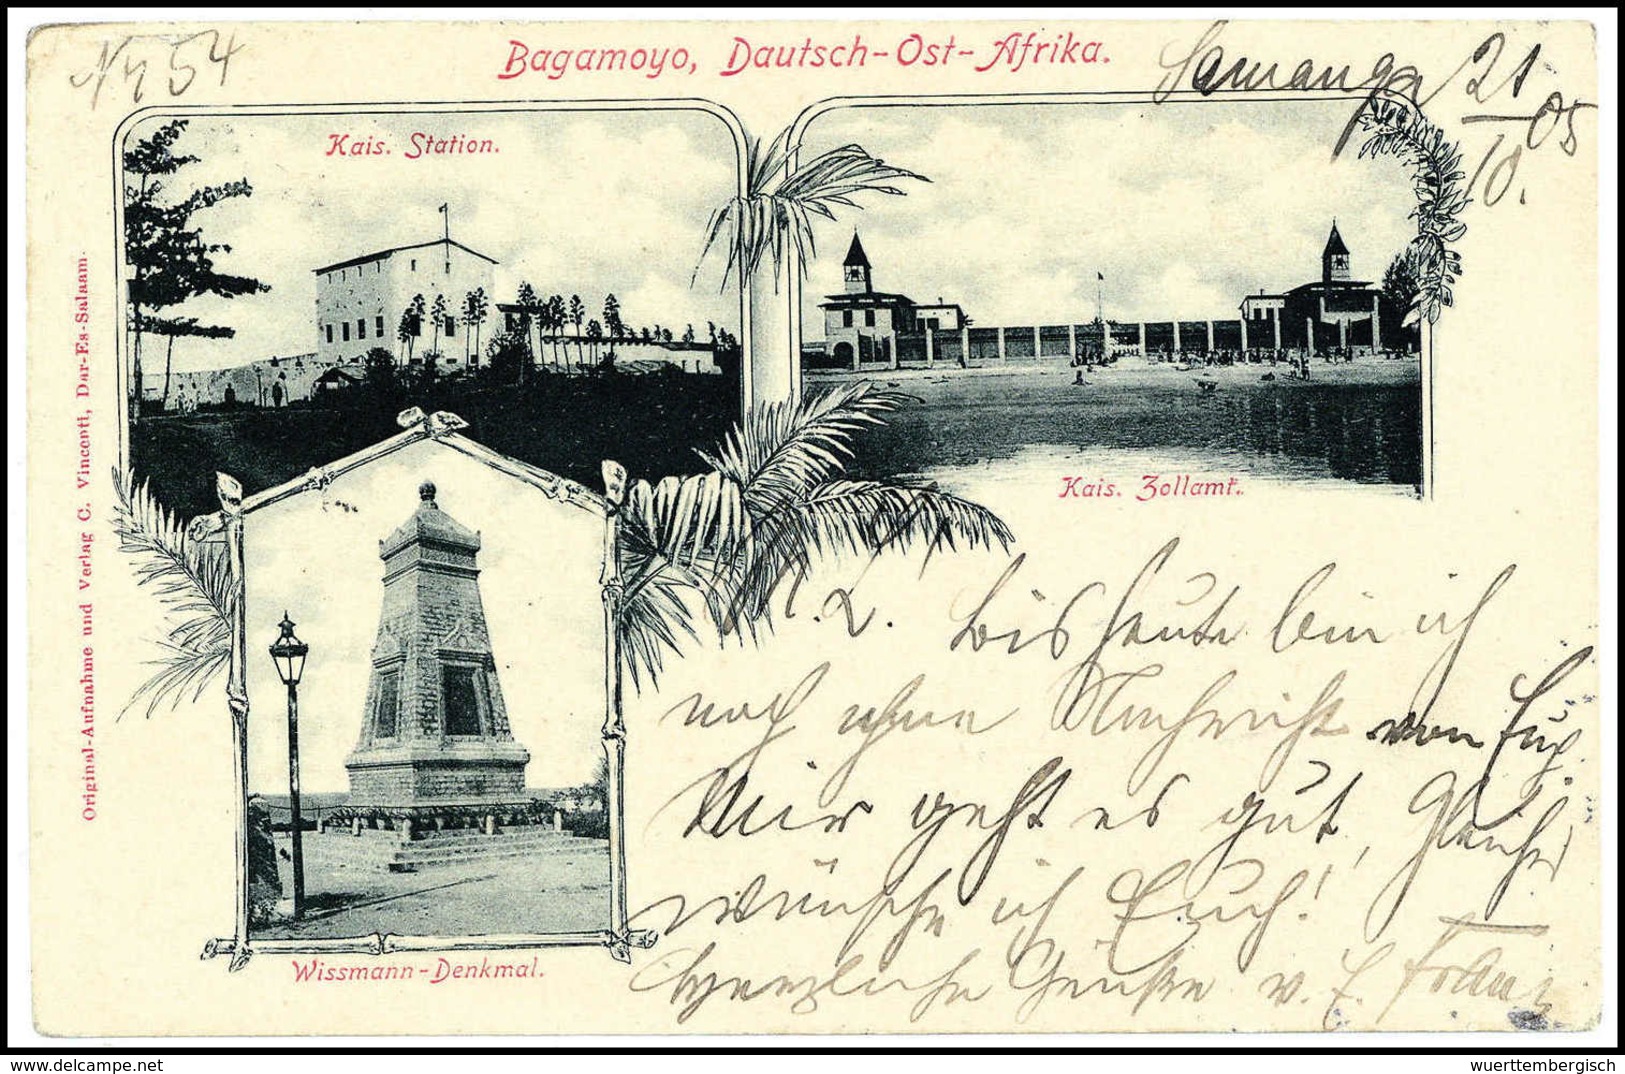 Nr 54
Bagamoyo, Dautsch-Ost-Afrika.
Samanga 21/10. 05
Kais. Station.
Kais. Zollamt.
Wissmann-Denkmal.
Original-Aufnahme und Verlag C. Vincenti, Dar-Es-Salaam.
M. L. Bis heute bin ich
noch ohne Nachricht von Euch.
Mir geht es gut, Gleiches
wünsche ich Euch!
Herzliche Grüße v. E. Franz
© Delcampe - The collector's marketplace
wuerttembergisch